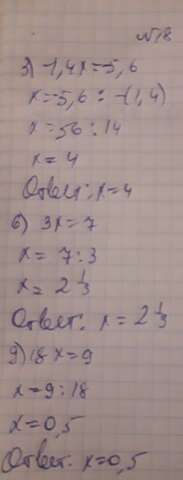 №18
3) -1,4x=-5,6
x=-5,6 : -(1,4)
x=56:14
x=4
Ответ: x=4
6) 3x=7
x= 7:3
x= 2 1/3
Ответ: x= 2 1/3
9) 18 x=9
x=9:18
x=0,5
Ответ: x=0,5